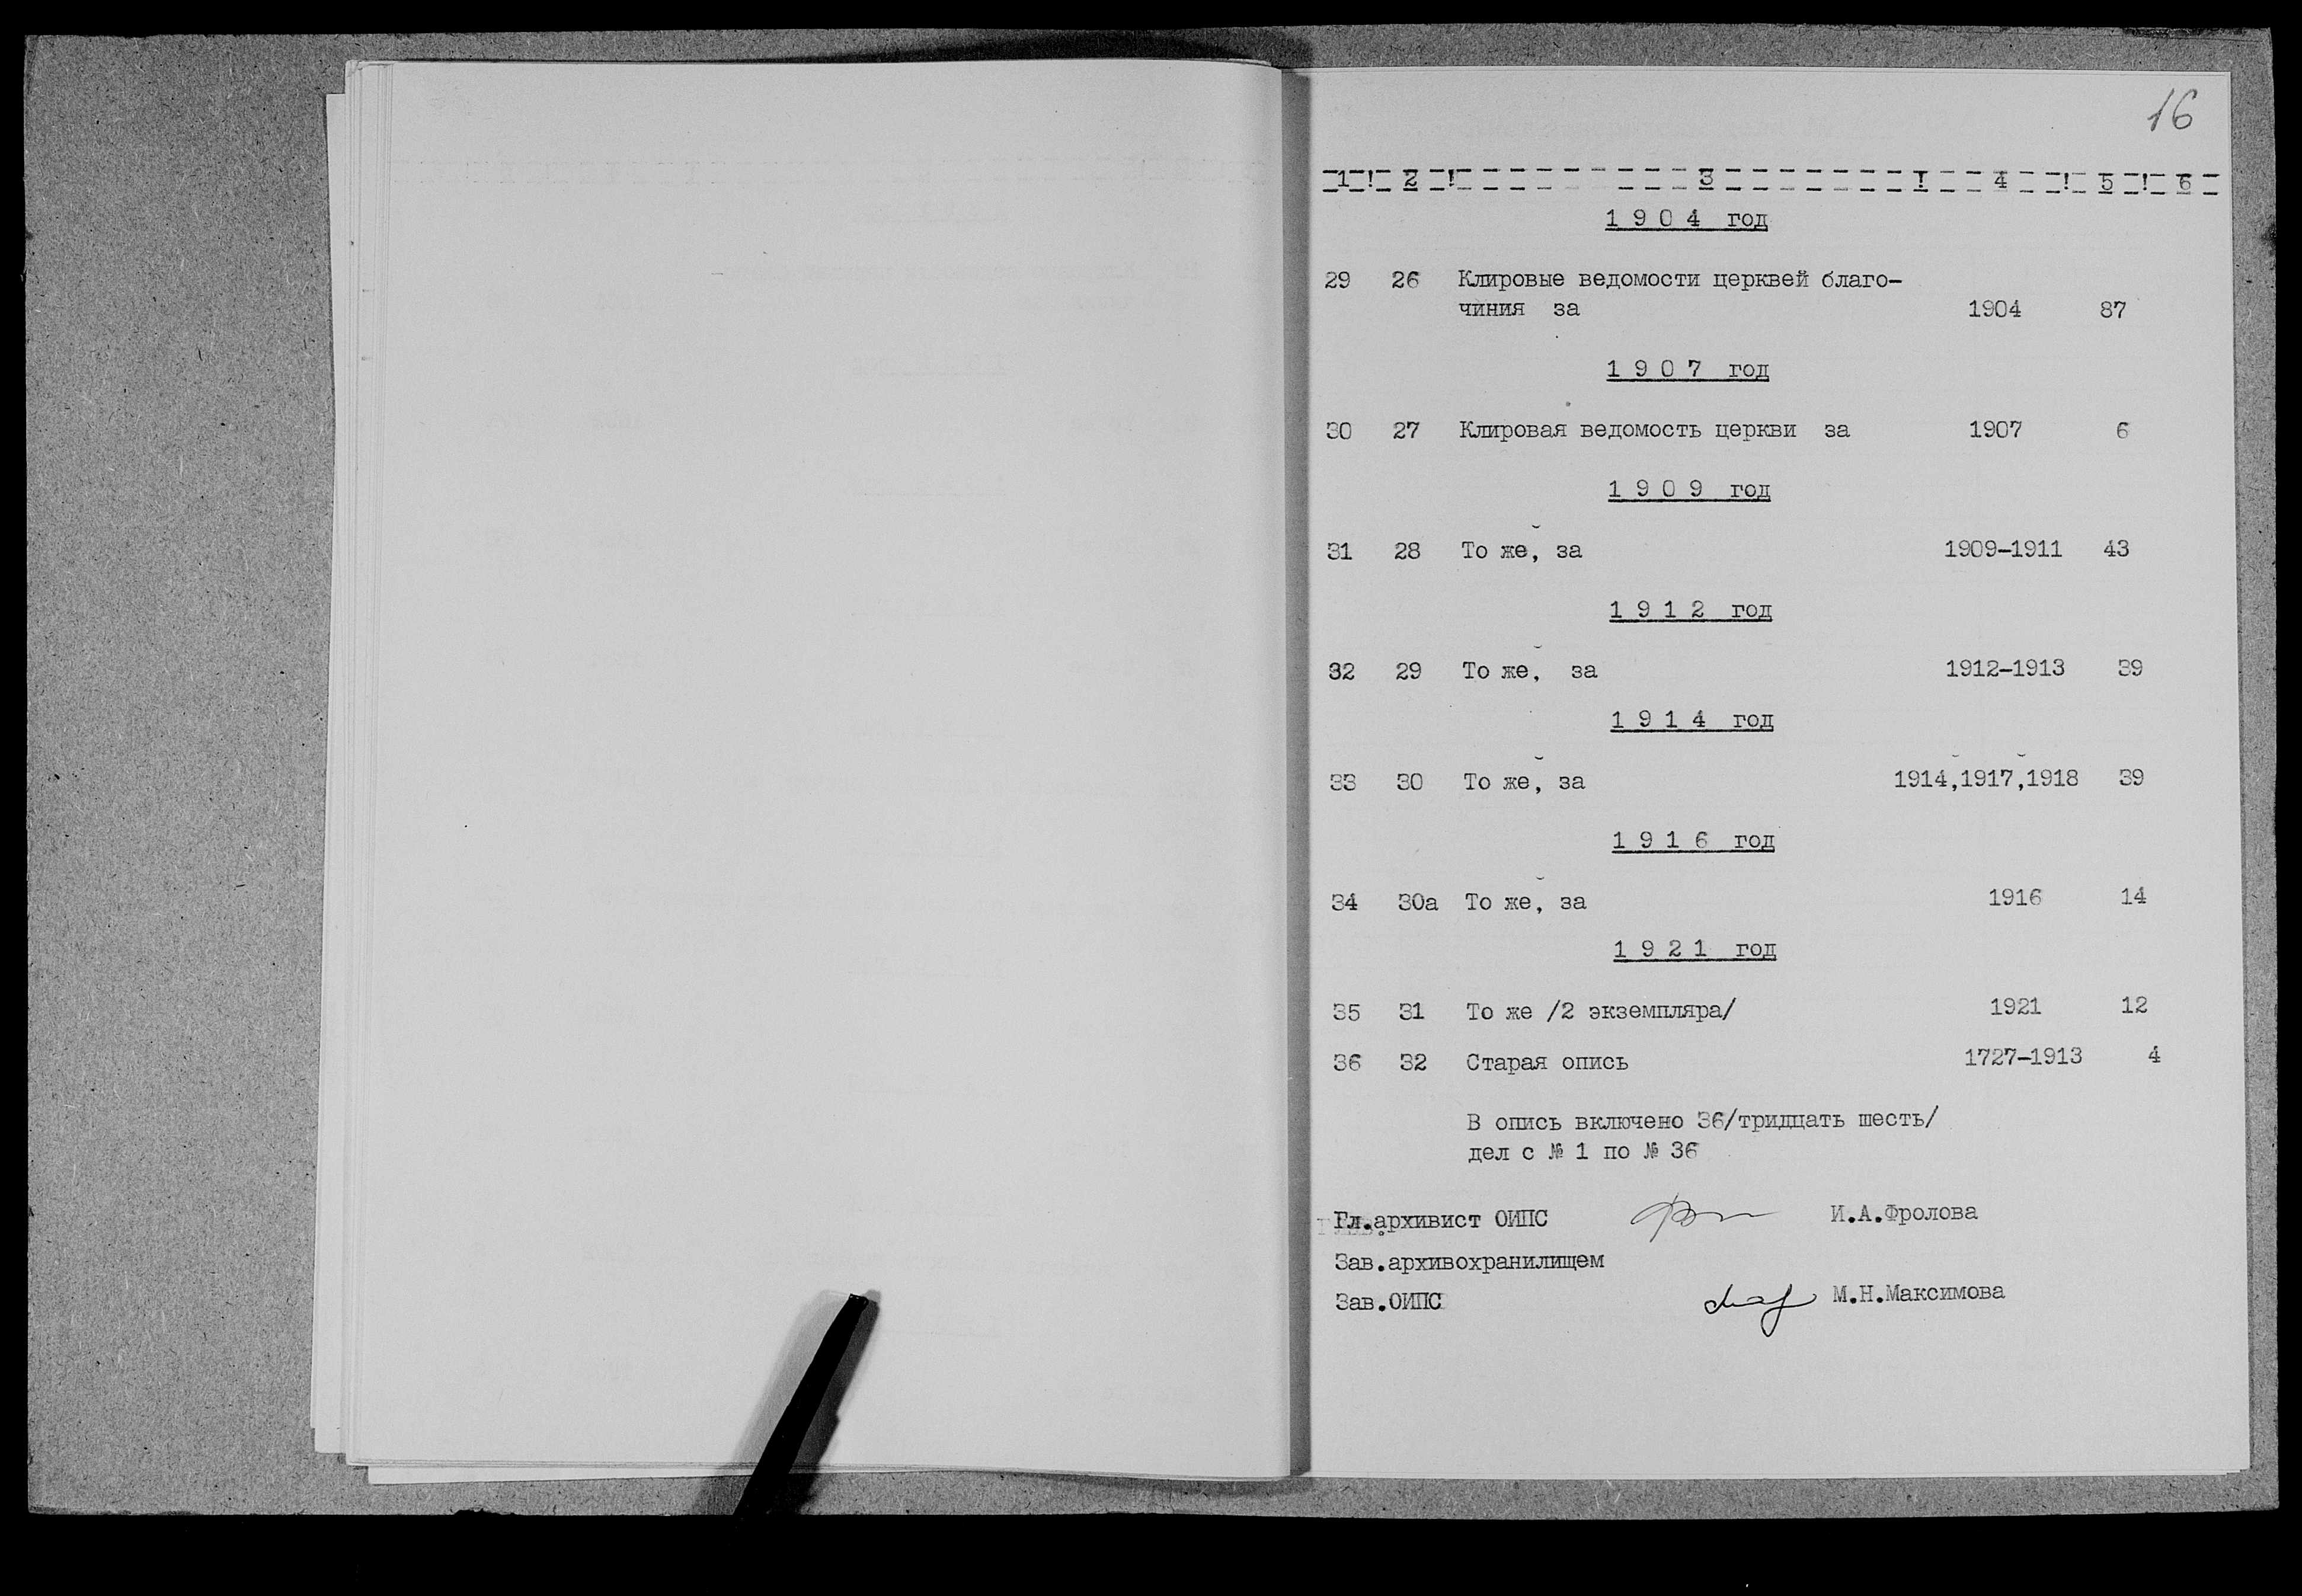 16
1 ! 2 ! 3 I 4 ! 5 ! 6
1 9 0 4 год
29 26 Клировые ведомости церквей благо-
чиния за 1904 87
1 9 0 7 год
30 27 Клировая ведомость церкви за 1907 6
1 9 0 9 год
31 28 То же, за 1909-1911 43
1 9 1 2 год
32 29 То же, за 1912-1913 39
1 9 1 4 год
33 30 То же, за 1914,1917,1918 39
1 9 1 6 год
34 30а То же, за 1916 14
1 9 2 1 год
35 31 То же /2 экземпляра/ 1921 12
36 32 Старая опись 1727-1913 4
В опись включено 36/тридцать шесть/
дел с № 1 по № 36
Гл.архивист ОИПС И.А.Фролова
Зав.архивохранилищем
Зав.ОИПС М.Н.Максимова